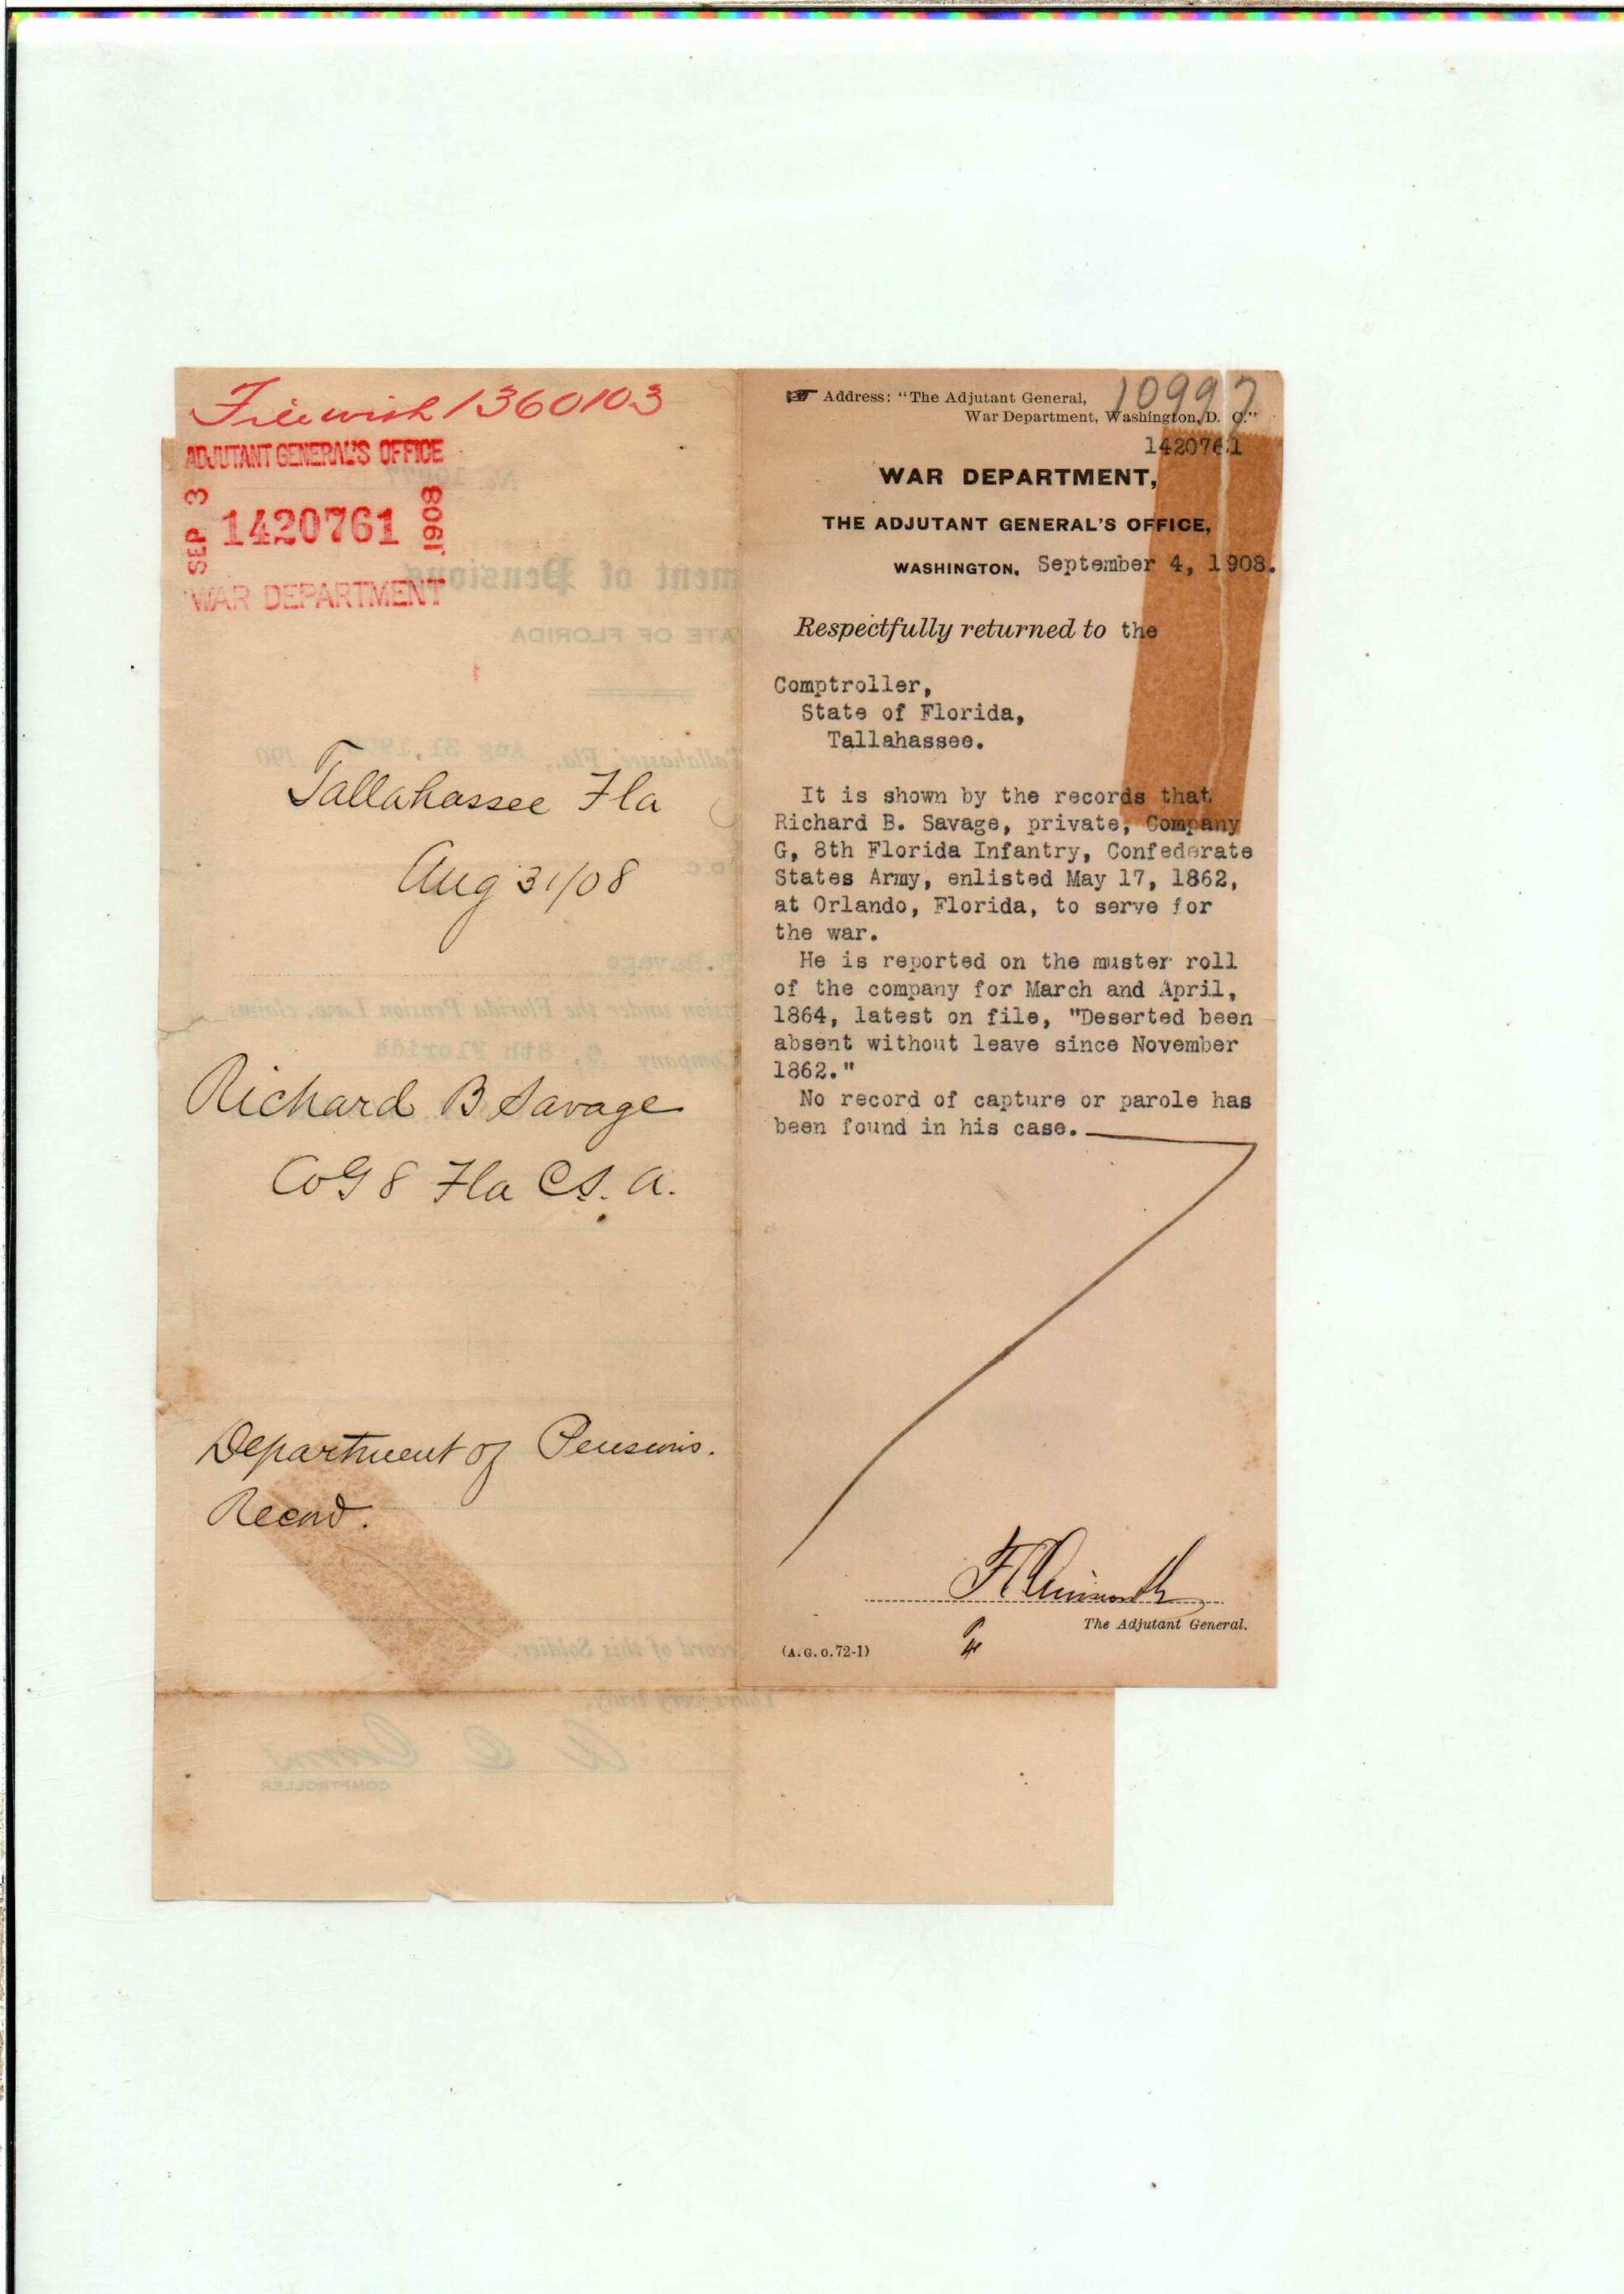 File with 1360103
ADJUTANT GENERAL'S OFFICE
SEP 3 1420761 1908
WAR DEPARTMENT
Tallahassee Fla
Aug 31/08
Richard B Savage
Co G 8 Fla C.S.A.
Department of Pensions.
Record.
10997
Address: "The Adjutant General,
War Department, Washington, D. C."
1420761
WAR DEPARTMENT,
THE ADJUTANT GENERAL'S OFFICE,
WASHINGTON, September 4, 1908.
Respectfully returned to the
Comptroller,
State of Florida,
Tallahassee.
It is shown by the records that
Richard B. Savage, private, Company
G, 8th Florida Infantry, Confederate
States Army, enlisted May 17, 1862,
at Orlando, Florida, to serve for
the war.
He is reported on the muster roll
of the company for March and April,
1864, latest on file, "Deserted been
absent without leave since November
1862."
No record of capture or parole has
been found in his case.
F C Ainsworth
The Adjutant General.
(A.G.O.72-1)